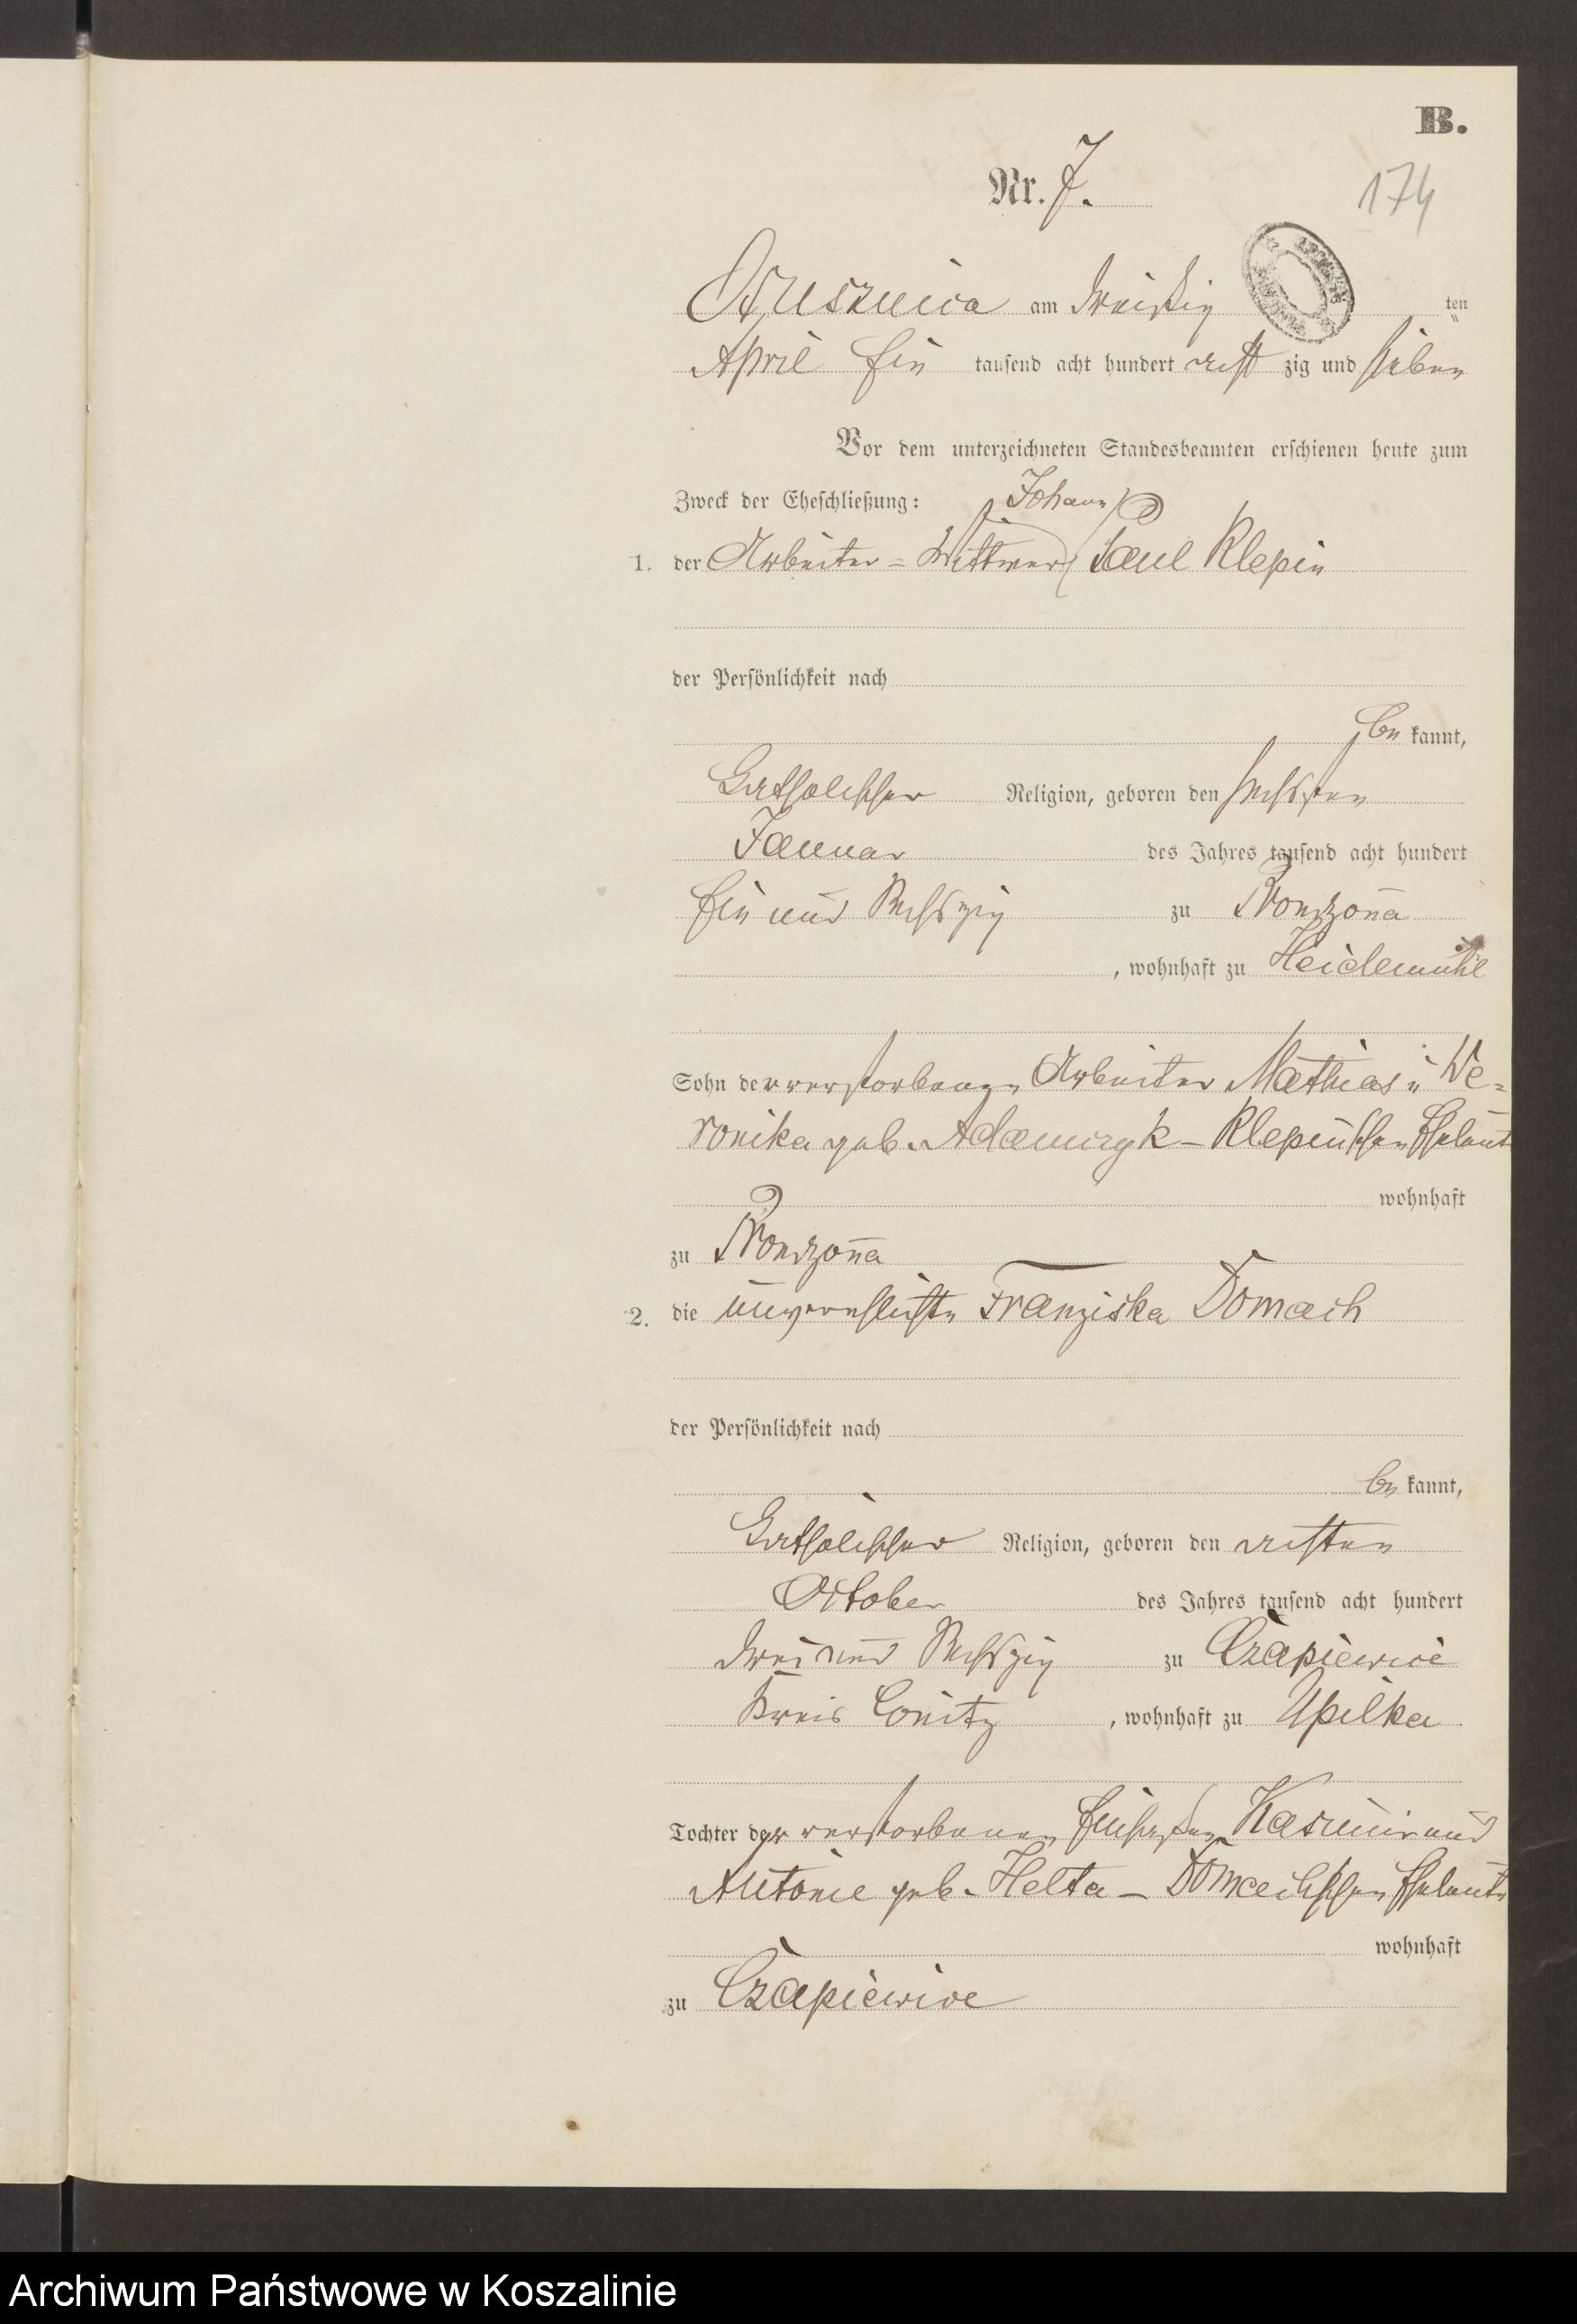 B.
Nr. 7.
174
Ossusznica am dreißig ten
April Ein tausend acht hundert acht zig und sieben
Vor dem unterzeichneten Standesbeamten erschienen heute zum
Zweck der Eheschließung: Johann
1. der Arbeiter - Wittwer Paul Klepin
der Persönlichkeit nach
be kannt,
Katholischer Religion, geboren den sechsten
Januar des Jahres tausend acht hundert
Ein und Sechszig zu Prondzonna
, wohnhaft zu Heidemühl
Sohn der verstorbenen Arbeiter Mathias u We-
ronika geb. Adamczyk - Klepin'schen Eheleute
wohnhaft
zu Prondzonna
2. die unverehlichte Franziska Domach
der Persönlichkeit nach
be kannt,
Katholischer Religion, geboren den achten
October des Jahres tausend acht hundert
drei und Sechszig zu Czapiewice
Kreis Conitz , wohnhaft zu Upilka
Tochter der verstorbenen Einsassen Kasimir und
Antonie geb. Helta - Domach'schen Eheleute
wohnhaft
zu Czapiewice
Archiwum Państwowe w Koszalinie